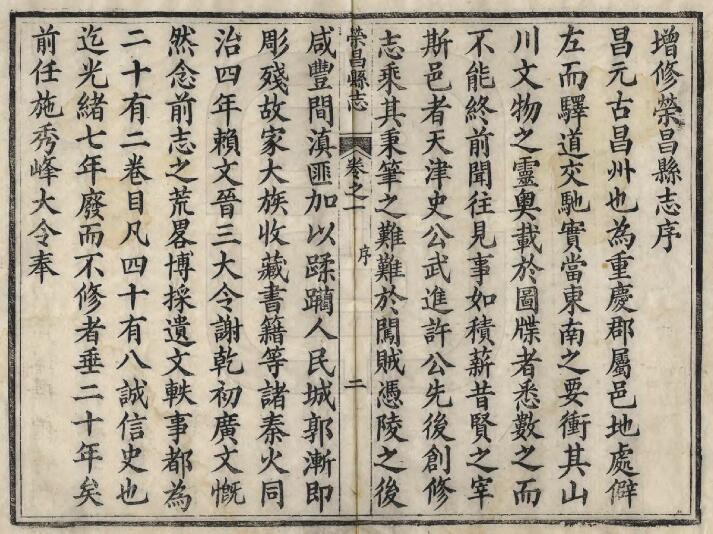 增修榮昌縣志序
昌元古昌州也為重慶郡屬邑地處僻
左而驛道交馳實當東南之要衝其山
川文物之靈奧載於圖牒者悉數之而
不能終前聞往見事如積薪昔賢之宰
斯邑者天津史公武進許公先後創修
志乘其秉筆之難難於闖賊憑陵之後
榮昌縣志
卷之一
序
二
咸豐間滇匪加以蹂躪人民城郭漸即
彫殘故家大族收藏書籍等諸秦火同
治四年賴文晉三大令謝乾初廣文慨
然念前志之荒畧博採遺文軼事都為
二十有二卷目凡四十有八誠信史也
迄光緒七年廢而不修者垂二十年矣
前任施秀峰大令奉